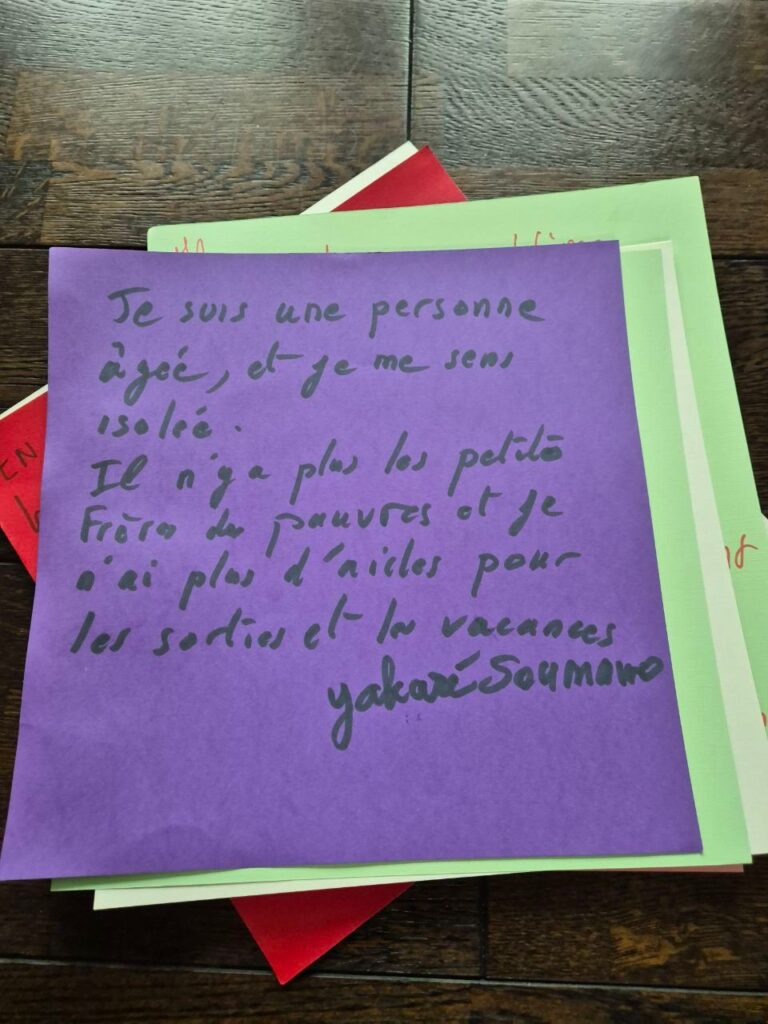 Je suis une personne
âgeé, et je me sens
isoleé.
Il n'y a plus les petits
Frères des pauvres et je
n'ai plus d'aides pour
les sorties et les vacances
Yakaré Soumano
EN